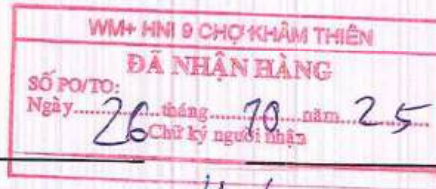 WM+ HNI 9 CHỢ KHÂM THIÊN
ĐÃ NHẬN HÀNG
SỐ PO/TO:
Ngày 26 tháng 10 năm 25
Chữ ký người nhận